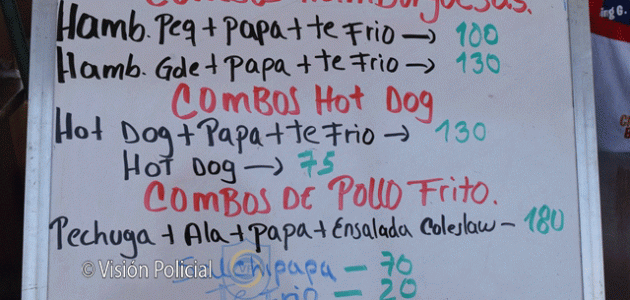 Hamburguesas.
Hamb. Peq + Papa + te Frio → 100
Hamb. Gde + Papa + te Frio → 130
COMBOS Hot Dog
Hot Dog + Papa + te Frio → 130
Hot Dog → 75
COMBOS DE Pollo Frito.
Pechuga + Ala + Papa + Ensalada Coleslaw - 180
Salchipapa - 70
te Frio - 20
© Visión Policial
ing G.